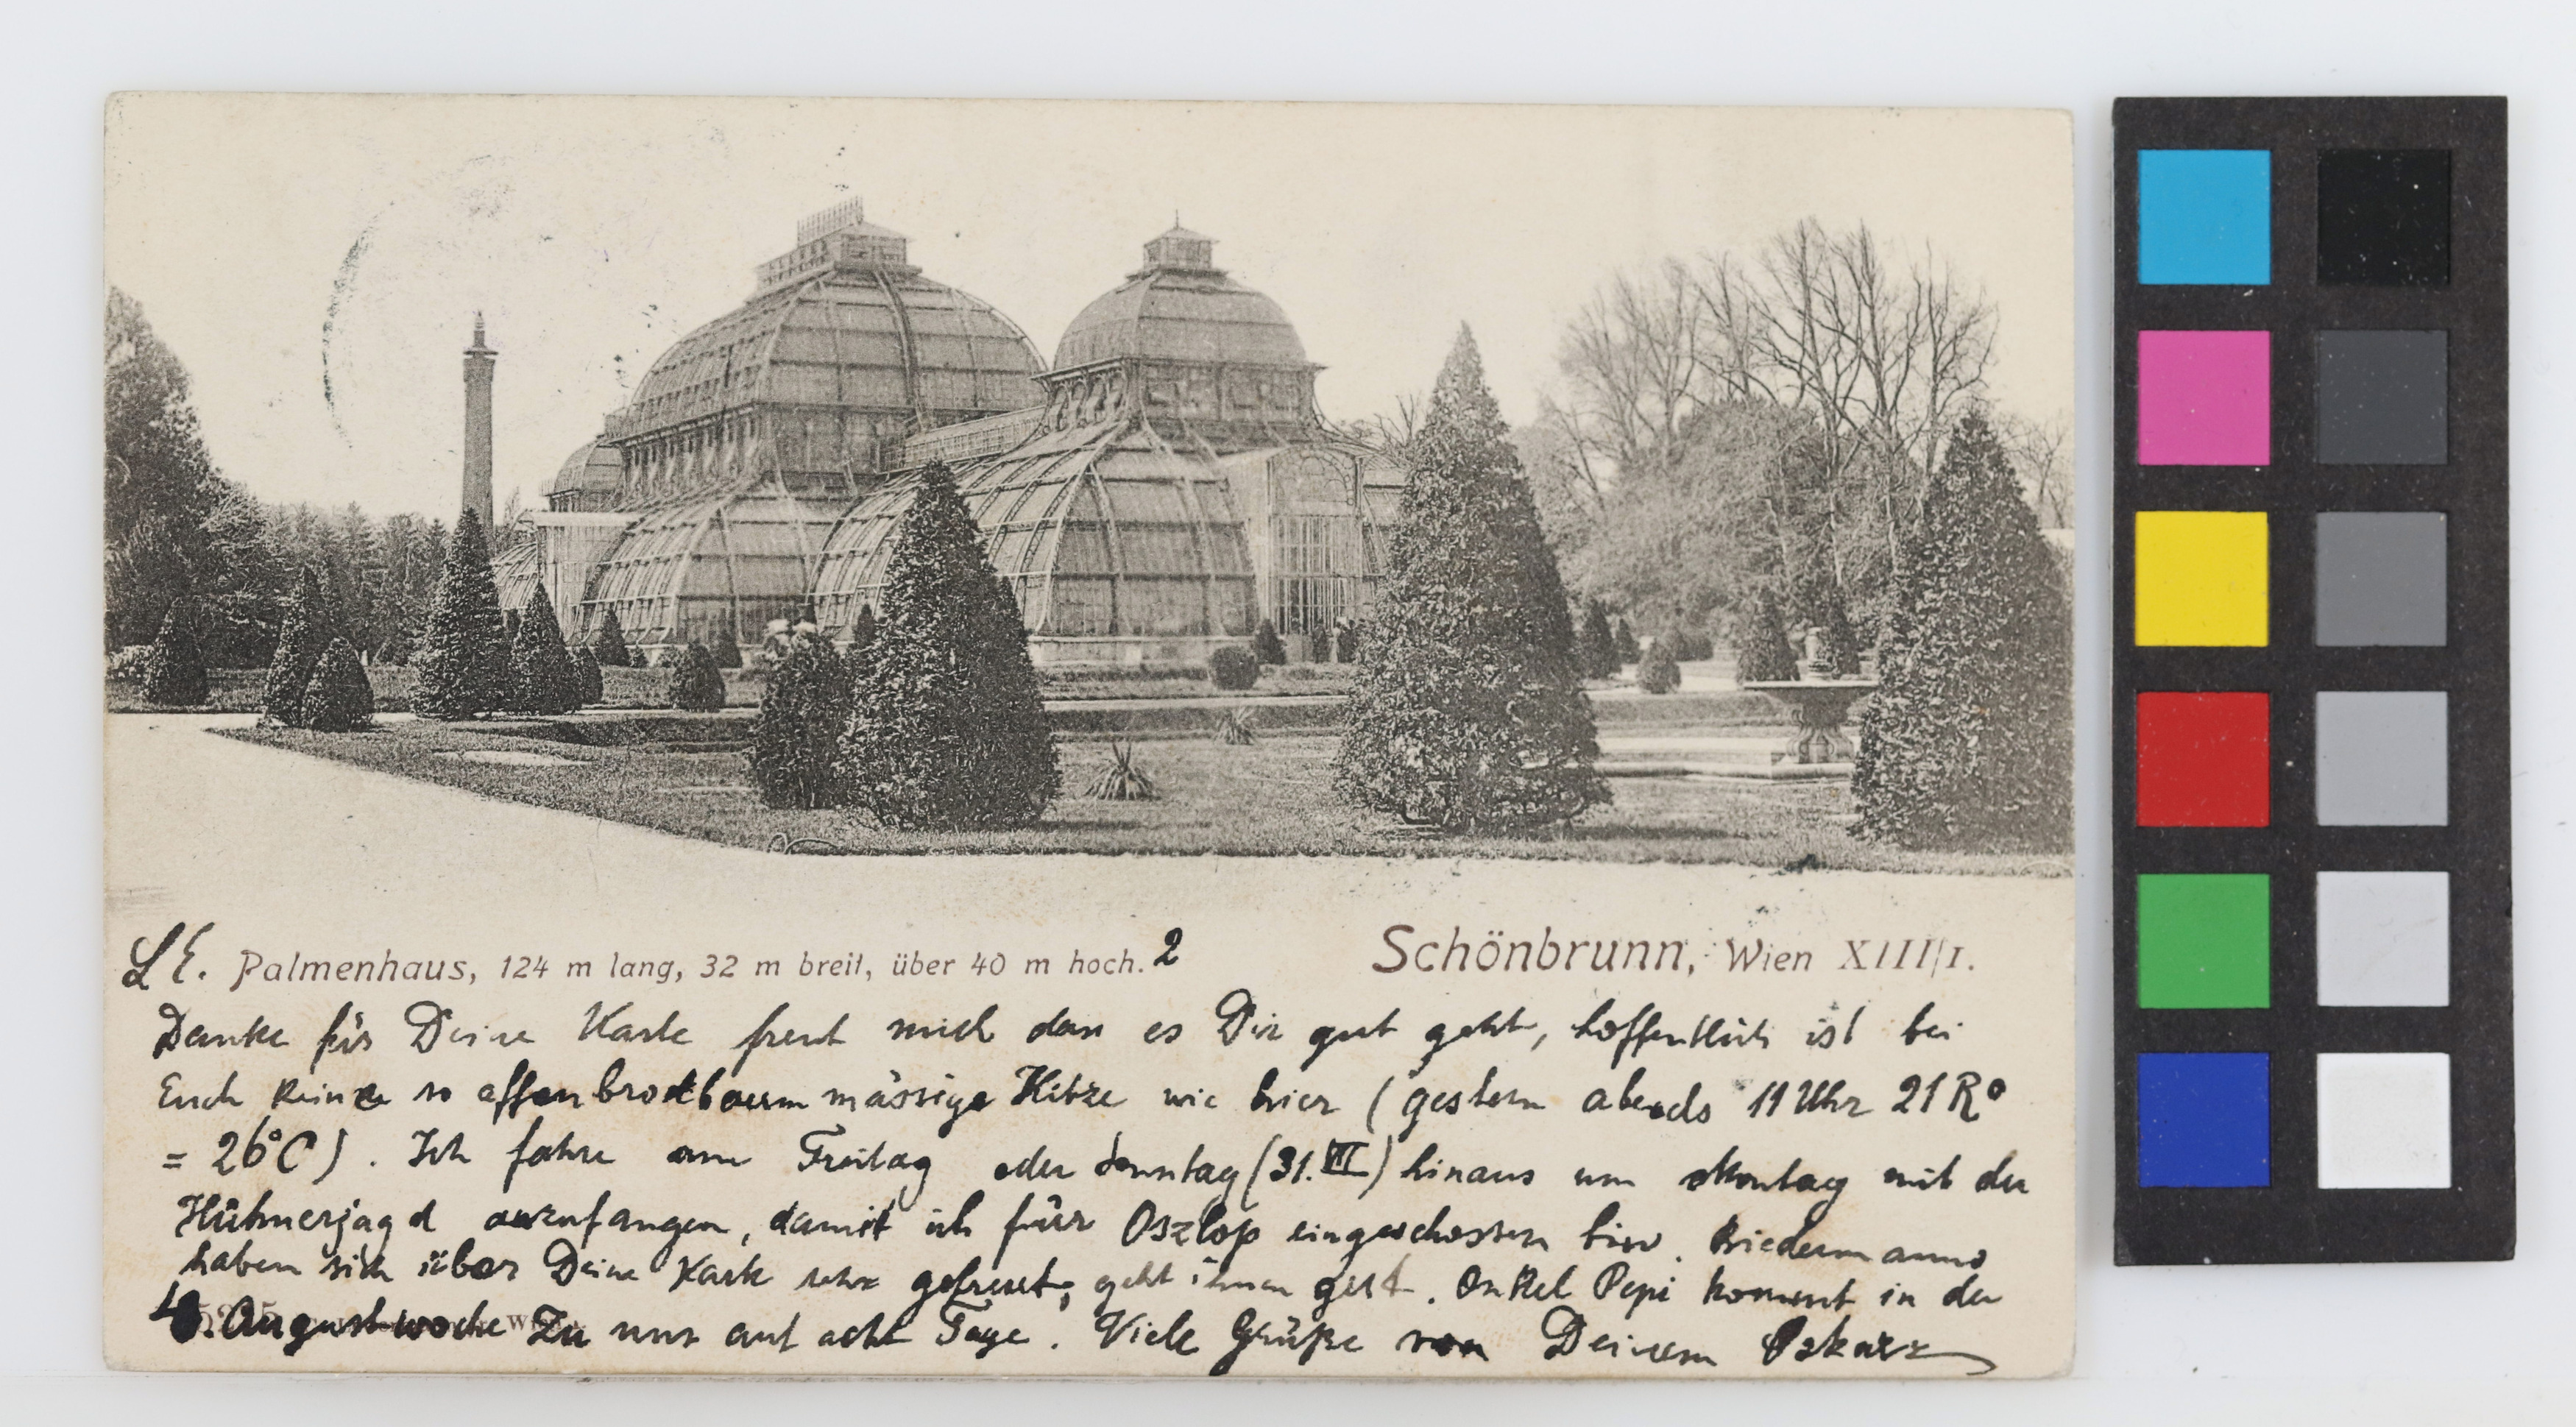 L E. Palmenhaus, 124 m lang, 32 m breit, über 40 m hoch. 2
Schönbrunn, Wien XIII/1.
Danke für Deine Karte freut mich dass es Dir gut geht, hoffentlich ist bei
Euch keine so affenbrodtbaum mässige Hitze wie hier (gestern abends 11 Uhr 21 R°
= 26°C). Ich fahre am Freitag oder Sonntag (31.VII) hinaus um Montag mit der
Hühnerjagd anzufangen, damit ich für Oszlop eingeschossen bin. Biedermanns
haben sich über Deine Karte sehr gefreut, geht ihnen gut. Onkel Pepi kommt in der
Augustwoche zu uns auf acht Tage. Viele Grüße von Deinem Oskar